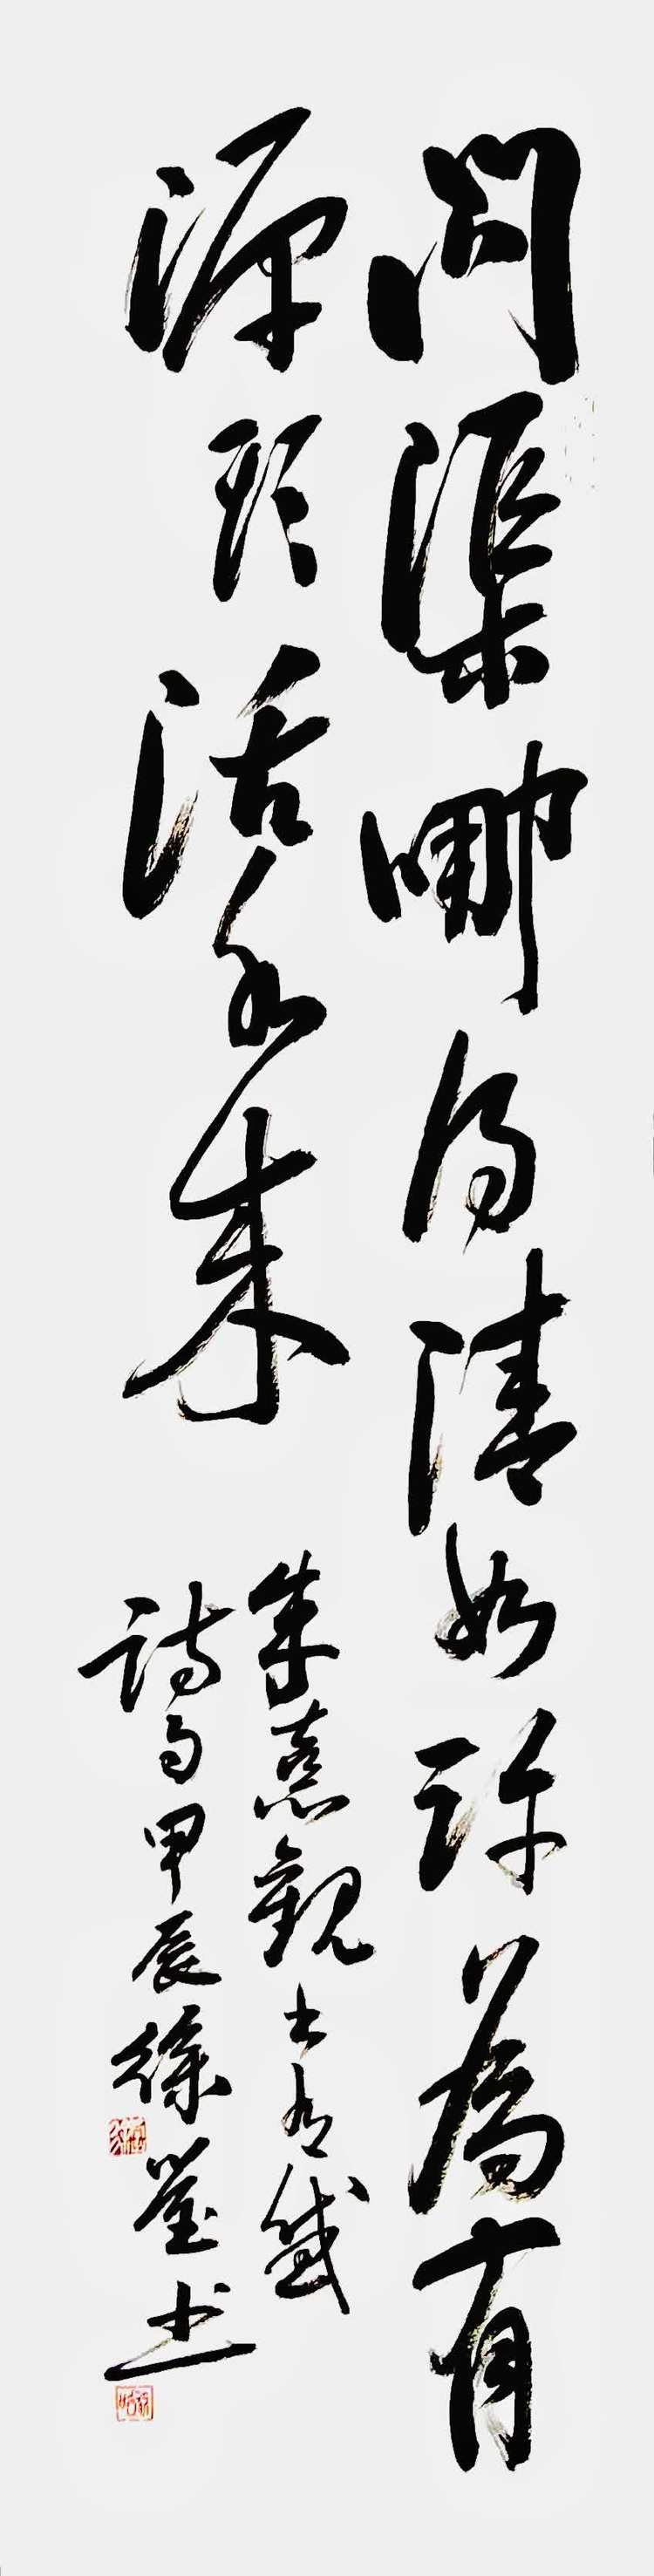 問渠哪得清如許為有
源头活水来
朱熹觀书有感
詩句甲辰徐瑩书